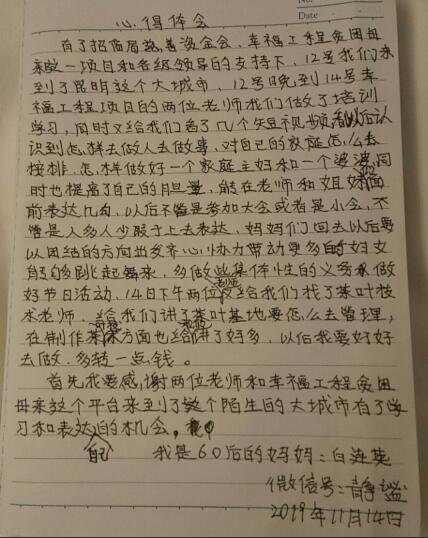 No.
Date
心得体会
有了招商局慈善资金会、幸福工程贫困母
亲这一项目和各级领导的支持下，12号我们来
到了昆明这个大城市，12号晚到14号幸
福工程项目的两位老师我们做了培训
学习，同时又给我们看了几个短视频，以后认
识到怎样去做人去做事，对自己的家庭怎么去
按排，怎样做好一个家庭主妇和一个婆婆，同
时也提高了自己的胆量，能在老师和姐妹们面
前表达几句，以后不管是参加大会或者是小会，不
管是人多人少敢于上去表达，妈妈们回去以后要
以团结的方向出发齐心协力带动更多的妇女
能够跳起舞来，多做些集体性的义务，做
好节日活动，14日下午两位老师又给我们找了茶叶技
术老师，给我们讲了茶叶基地要怎么去管理，
在制作茶方面也给讲了好多，以后我要好好
去做，多转一点钱。
首先我要感谢两位老师和幸福工程贫困
母亲这个平台来到了这个陌生的大城市有了学
习和表达自己的机会。
我是60后的妈妈：白连英
微信号：静谧
2019年11月14日